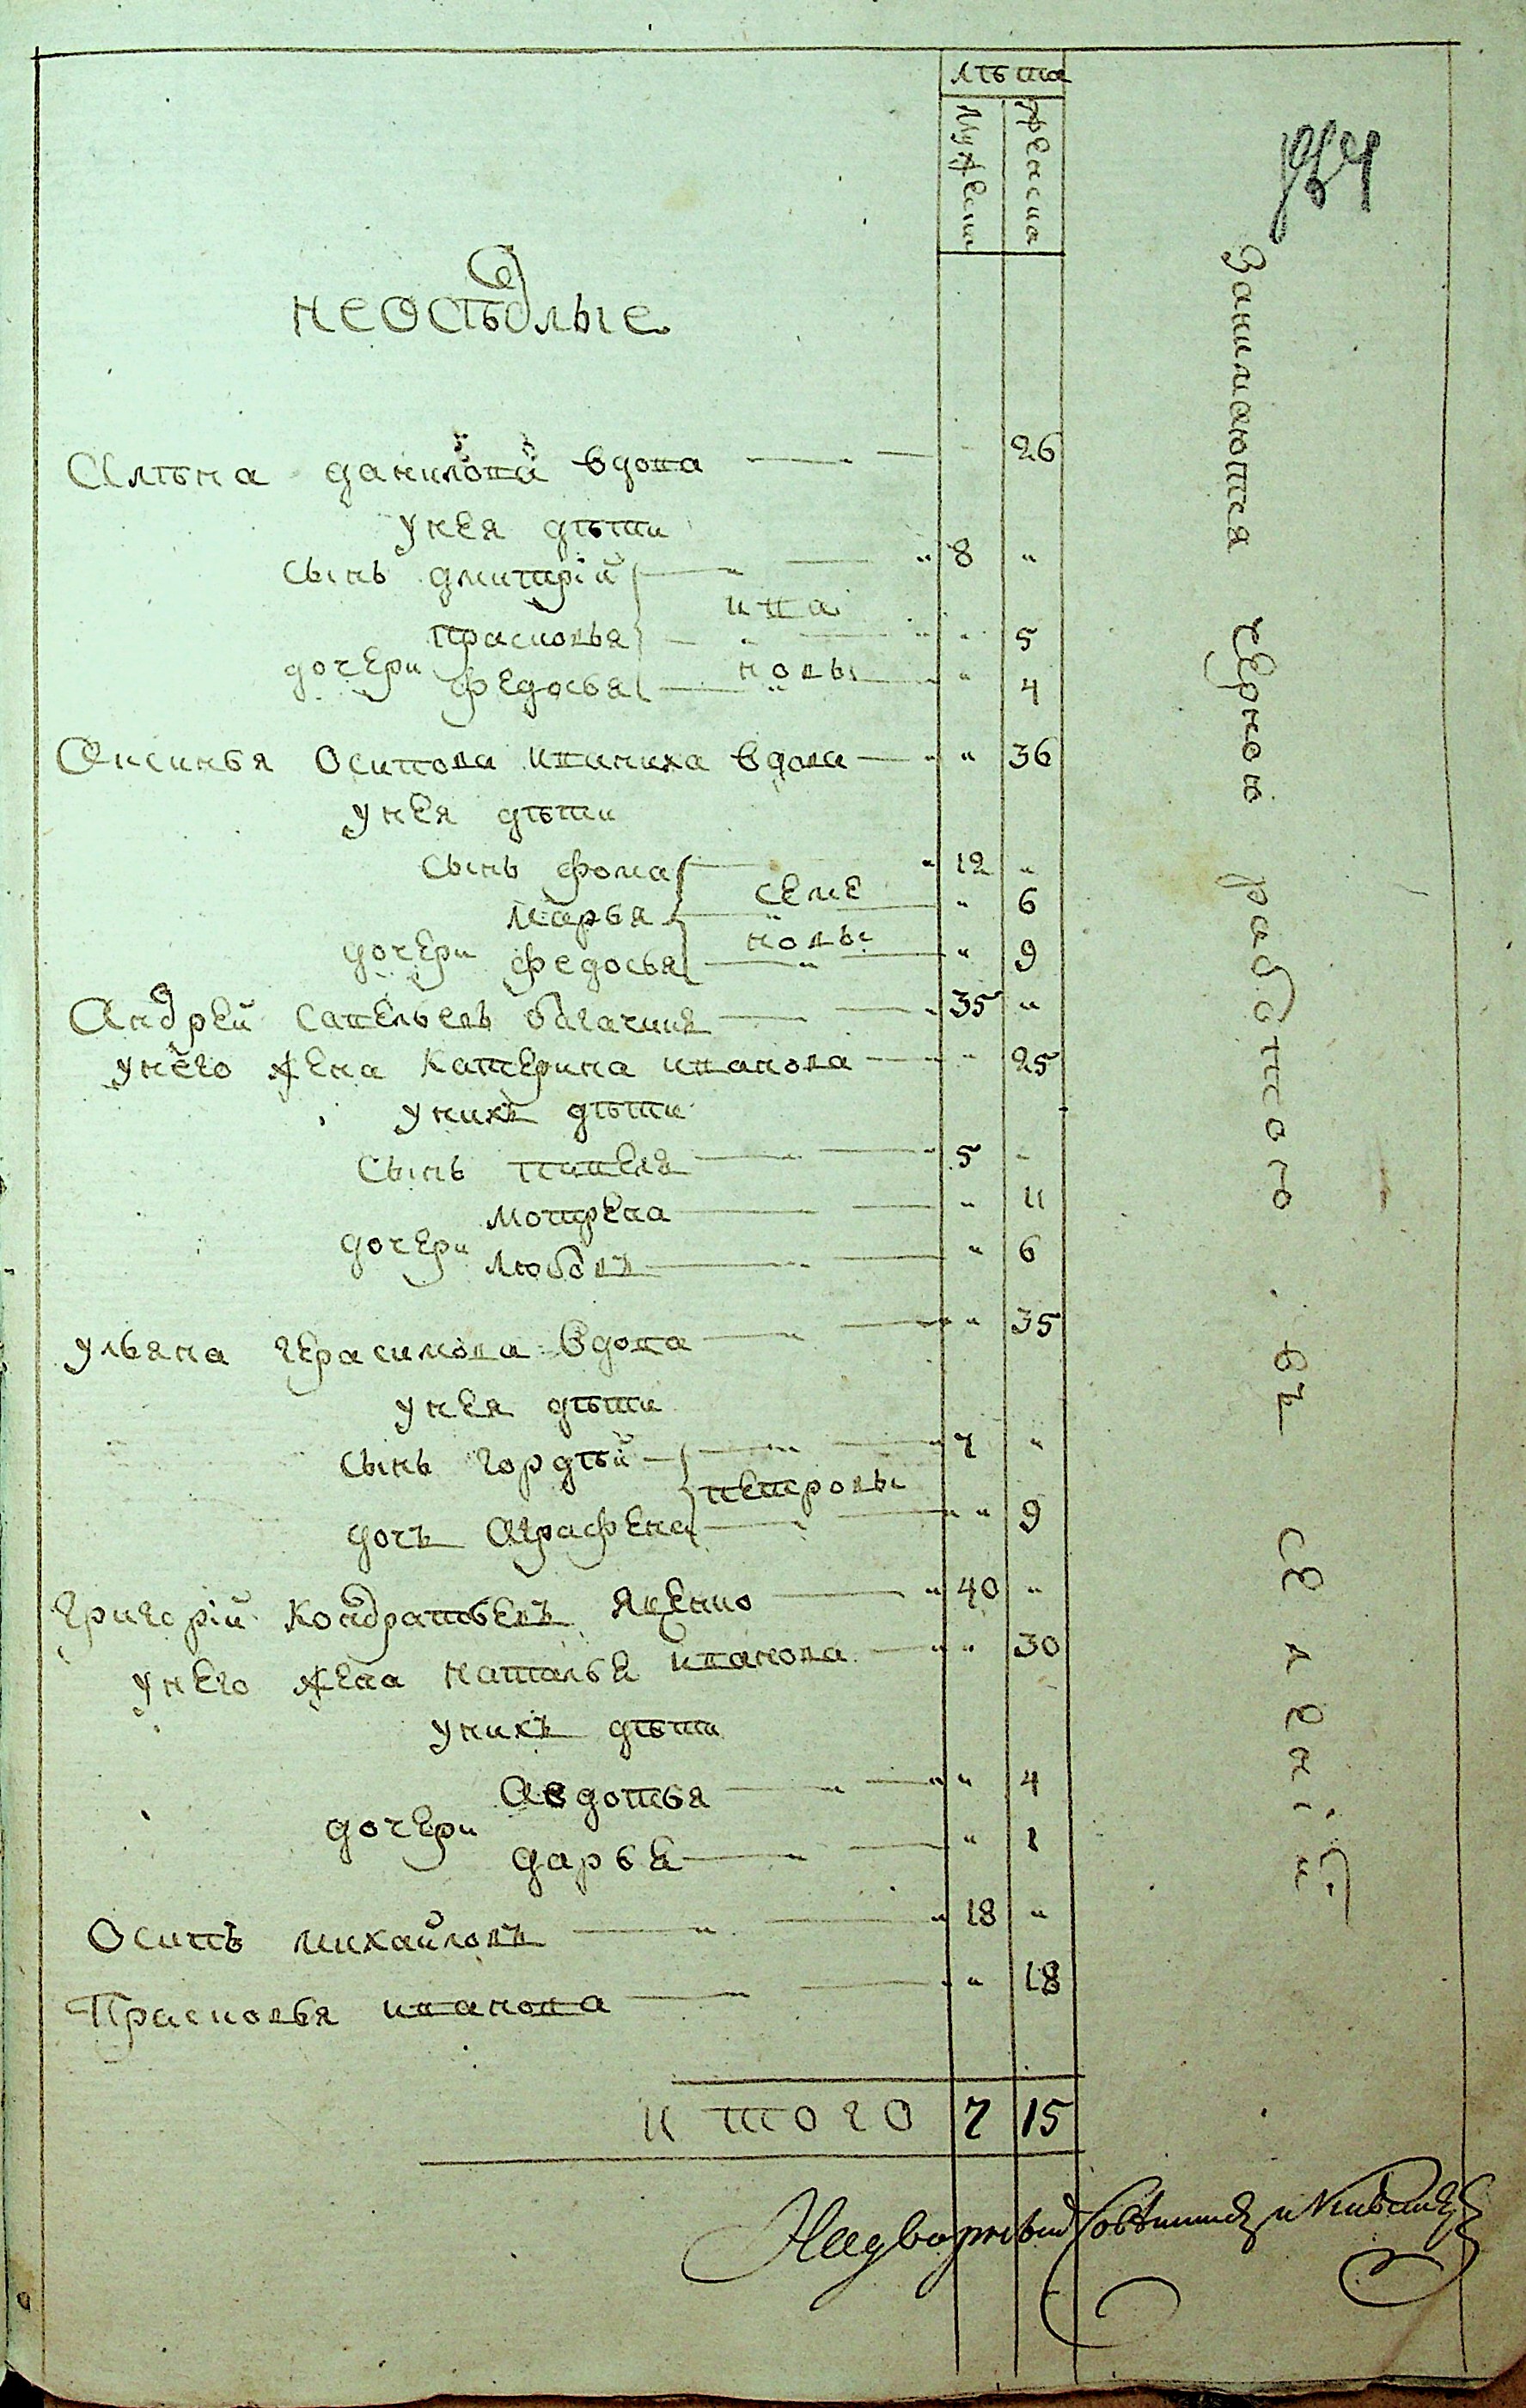 лѣта
мужеска женска
неосѣдлые
Алѣна данилова вдова 26
У нея дѣти
сынъ дмитрій 8 „
ива
Прасковья „ 5
новы
дочери
федосья „ 4
Аксинья Осипова иваниха вдова „ 36
У нея дѣти
Сынъ фома 12 „
семе
марья „ 6
новы
дочери
федосья „ 9
Андрей Савельевъ 35 „
У него жена Катерина иванова „ 25
У нихъ дѣти
Сынъ 5 „
Мотрена „ 11
дочери
любовь „ 6
Ульяна герасимова вдова „ 35
У нея дѣти
Сынъ гордѣй 7 „
петровы
дочь Аграфена „ 9
Григорій Кондратьевъ 40 „
У него жена Наталья иванова „ 30
У нихъ дѣти
Авдотья „ 4
дочери
дарья „ 1
Осипъ михайловъ 18 „
Прасковья иванова „ 18
итого 7 15
Занимаются черною работаю въ селѣній
Надворный Совѣтникъ